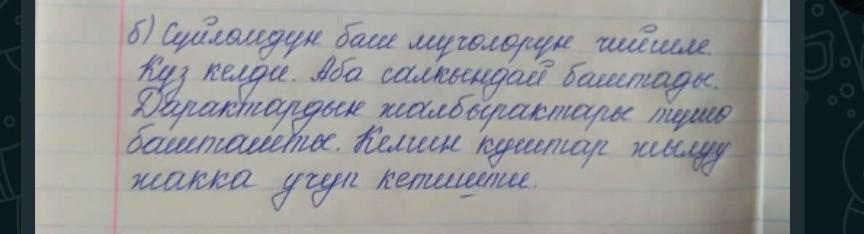 б) Суйломдун баш мучолорун чийиле.
Куз келди. Аба салкындай баштады.
Дарактардын жалбырактары тушо
башташты. Келгин куштар жылуу
жакка учуп кетишти.